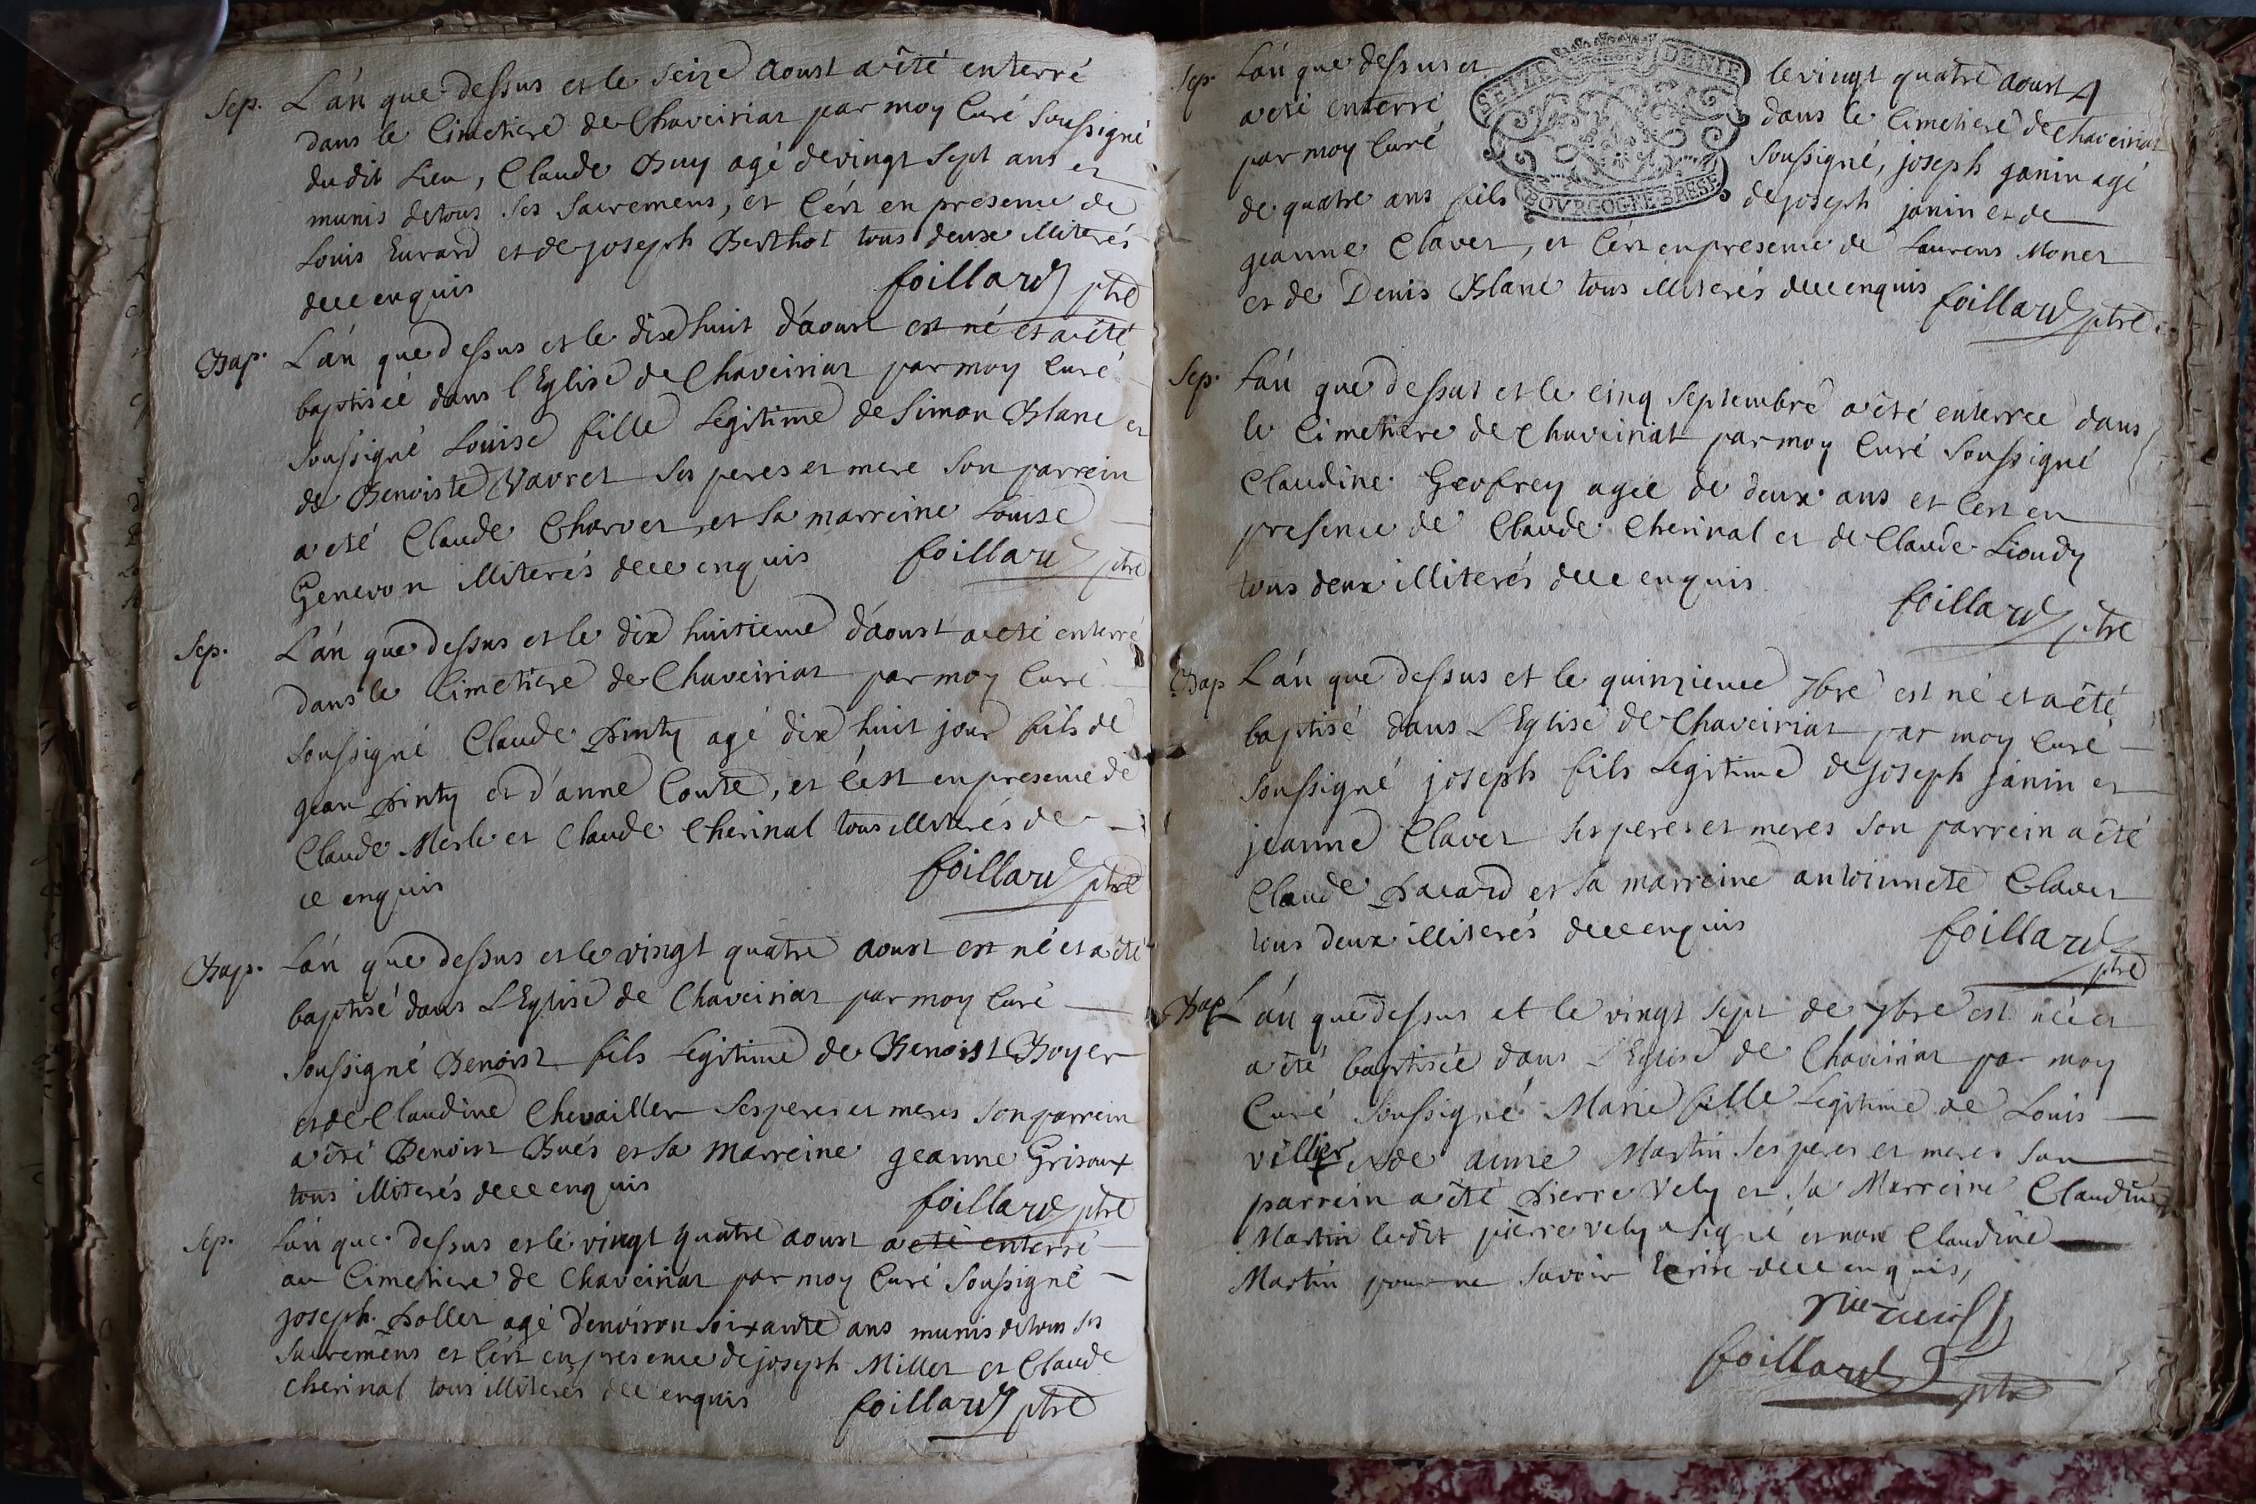 Sep. L'an que dessus et le seize Aoust a êté enterré
dans le Cimetiere de Chaveiriat par moy Curé soussigné
du dit Lieu, Claude Buy agé de vingt sept ans et
munis de tous ses sacremens, et c'ert en presence de
Louis Evrard et de joseph Berthot tous deux illiterés
de ce enquis foillard ptre
Bap. L'an que dessus et le dixhuit d'aoust est né et a êté
baptisée dans l'Eglise de Chaveiriat par moy Curé
soussigné Louise fille Legitime de Simon Blanc et
de Benoiste Vavret ses peres et mere son parrein
a eté Claude Charvet, et sa marreine Louise
Genevon illiterés de ce enquis foillard ptre
Sep. L'an que dessus et le dix huitieme d'aoust a eté enterré
dans le Cimetiere de Chaveiriat par moy Curé
soussigné Claude Pinty agé dix huit jour fils de
jean Pinty et d'anne Conte, et c'est en presence de
Claude Merle et Claude Cherinal tous illiterés de
ce enquis foillard ptre
Bap. L'an que dessus et le vingt quatre Aoust est né et a êté
baptisé dans L'Eglise de Chaveiriat par moy Curé
soussigné Benoist fils Legitime de Benoist Boyer
et de Claudine Chevailler ses peres et meres son parrein
a êté Benoist Bués et sa Marreine geanne Grisoux
tous illiterés de ce enquis foillard ptre
Sep. L'an que dessus et le vingt quatre aoust a eté enterré
au Cimetiere de Chaveiriat par moy Curé soussigné
joseph Pollet agé d'environ soixante ans munis de tous ses
sacremens et c'ert en presence de joseph Millet et Claude
Cherinal tous illiterés de ce enquis foillard ptre
SEIZE DENIE
BOURGOGNE BRESE
4
Sep. L'an que dessus et le vingt quatre Aoust
a eté enterré dans le Cimetiere de Chaveiriat
par moy Curé soussigné, joseph ganin agé
de quatre ans fils de joseph janin et de
geanne Clavet, et c'ert en presence de Laurens Monet
et de Denis Blanc tous illiterés de ce enquis foillard ptre
Sep. L'an que dessus et le cinq septembre a êté enterree dans
le Cimetiere de Chaveiriat par moy Curé soussigné
Claudine Geofrey agée de deux ans et c'ert en
presence de Claude Cherinal et de Claude Lioudy
tous deux illiterés de ce enquis
foillard ptre
Bap L'an que dessus et le quinzieme 7bre est né et a êté
baptisé dans L'Eglise de Chaveiriat par moy Curé
soussigné joseph fils Legitime de joseph janin et
jeanne Clavet ses peres et meres son parrein a êté
Claude Pacard et sa marreine antoinnete Clavet
tous deux illiterés de ce enquis foillard
ptre
Bap L'an que dessus et le vingt sept de 7bre est née et
a êté baptisée dans L'Eglise de Chaveiriat par moy
Curé soussigné Marie fille Legitime de Louis
villier et de anne Martin ses peres et meres son
parrein a êté Pierre Vely et sa Marreine Claudine
Martin ledit pierre vely a signé et non Claudine
Martin pour ne savoir Ecrire de ce enquis,
foillard ptre